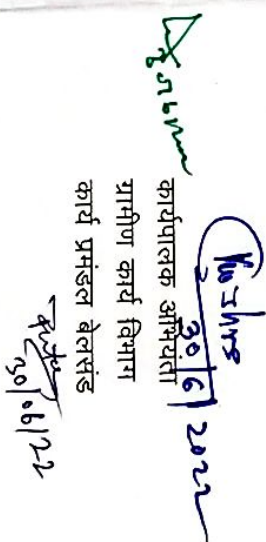 30/6/2022
कार्यपालक अभियंता
ग्रामीण कार्य विभाग
कार्य प्रमंडल बेलसंड
30/06/22